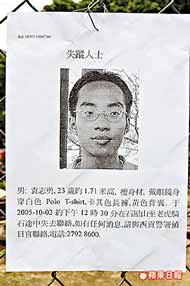 失蹤人士
男: 袁志勇, 23 歲約 1.71 米高, 瘦身材, 戴眼鏡身
穿白色 Polo T-shirt, 卡其色長褲, 黃色背囊. 于
2005-10-02 約下午 12 時 30 分在石壆山至老虎騎
石途中失去聯絡, 如有任何消息, 請與西貢警署值
日官聯絡, 電話: 2792 8600.
蘋果日報